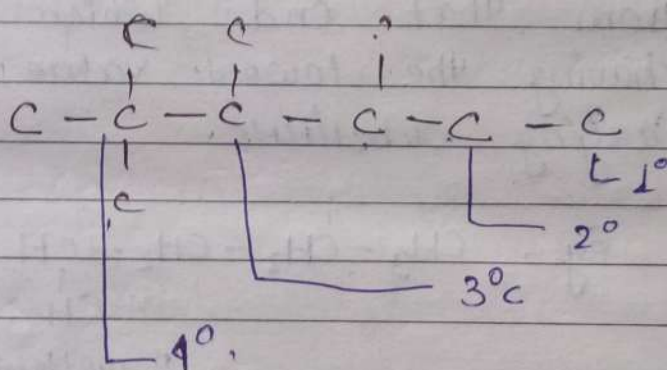 C C
C - C - C - C - C - C
C
1°
2°
3°c
4°.